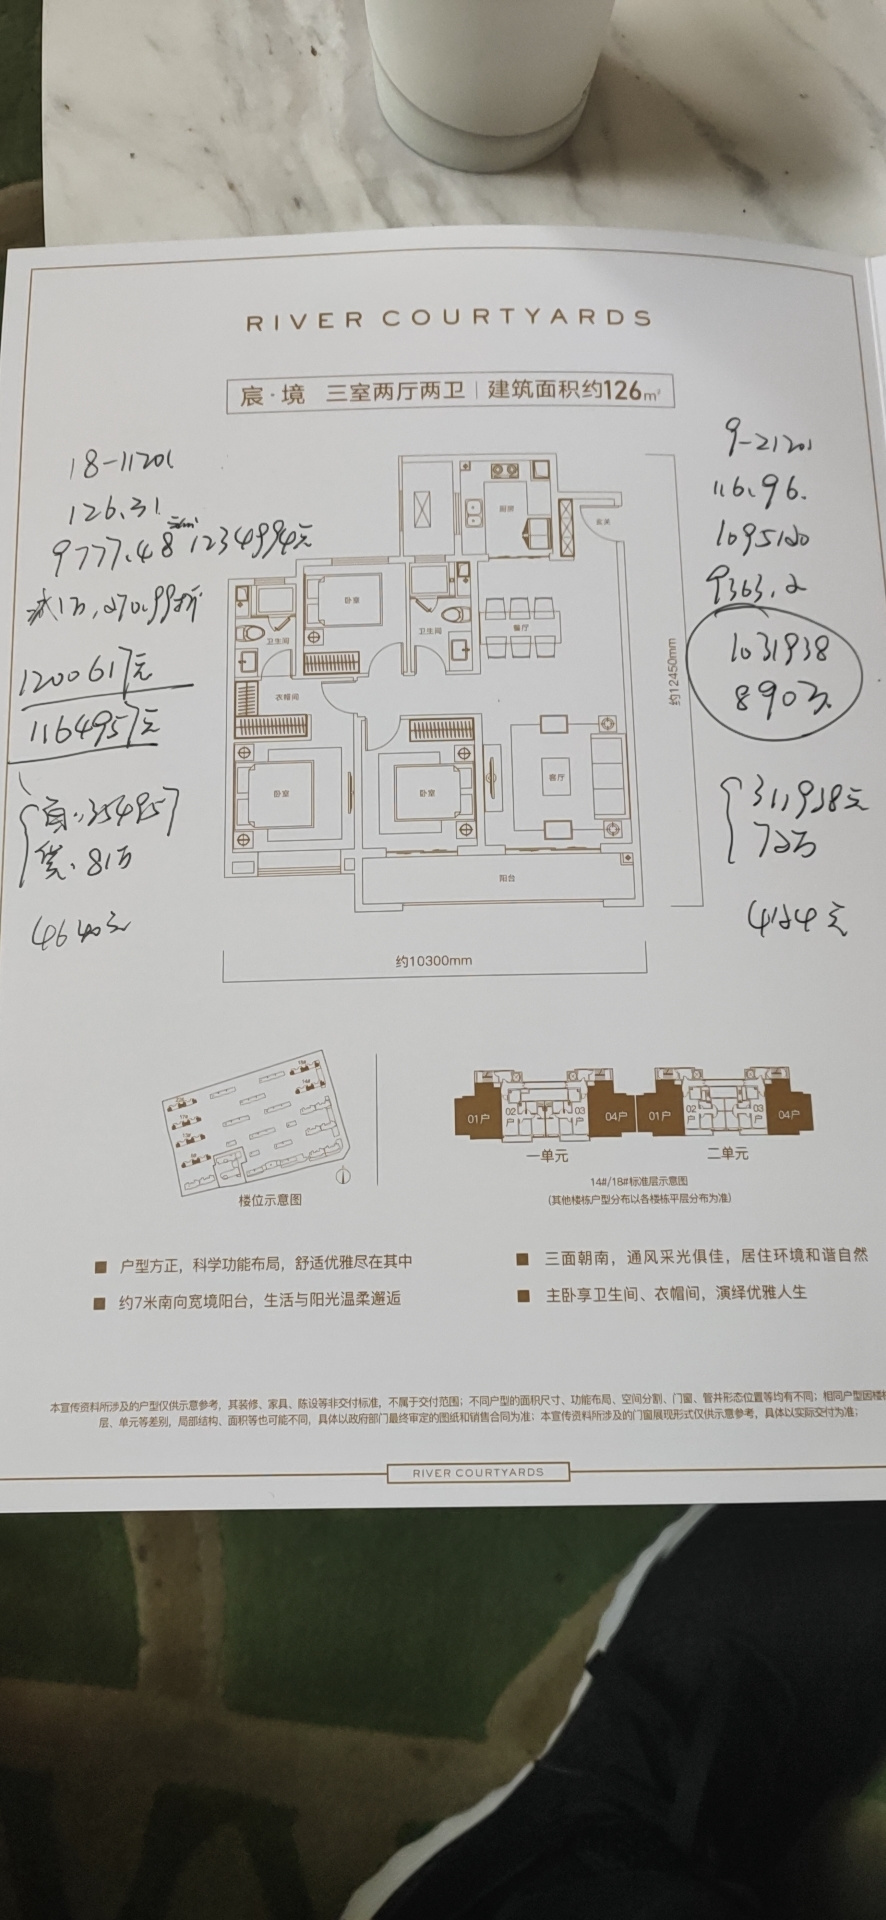 RIVER COURTYARDS
宸·境 三室两厅两卫 | 建筑面积约126m²
18-11201
126.31
9777.48元/m² 1234994元
1200617元
1164957元
首:354957
贷:81万
4640元
9-21201
116.96.
1095120
9363.2
1031938
8903.
311938元
72万
4124元
厨房
玄关
卧室
卫生间
卫生间
餐厅
衣帽间
卧室
卧室
客厅
阳台
约12450mm
约10300mm
楼位示意图
01户
02户
03户
04户
01户
02户
03户
04户
一单元
二单元
14#/18#标准层示意图
(其他楼栋户型分布以各楼栋平层分布为准)
■ 户型方正，科学功能布局，舒适优雅尽在其中
■ 三面朝南，通风采光俱佳，居住环境和谐自然
■ 约7米南向宽境阳台，生活与阳光温柔邂逅
■ 主卧享卫生间、衣帽间，演绎优雅人生
本宣传资料所涉及的户型仅供示意参考，其装修、家具、陈设等非交付标准，不属于交付范围；不同户型的面积尺寸、功能布局、空间分割、门窗、管井形态位置等均有不同；相同户型因楼栋
层、单元等差别，局部结构、面积等也可能不同，具体以政府部门最终审定的图纸和销售合同为准；本宣传资料所涉及的门窗展现形式仅供示意参考，具体以实际交付为准；
RIVER COURTYARDS